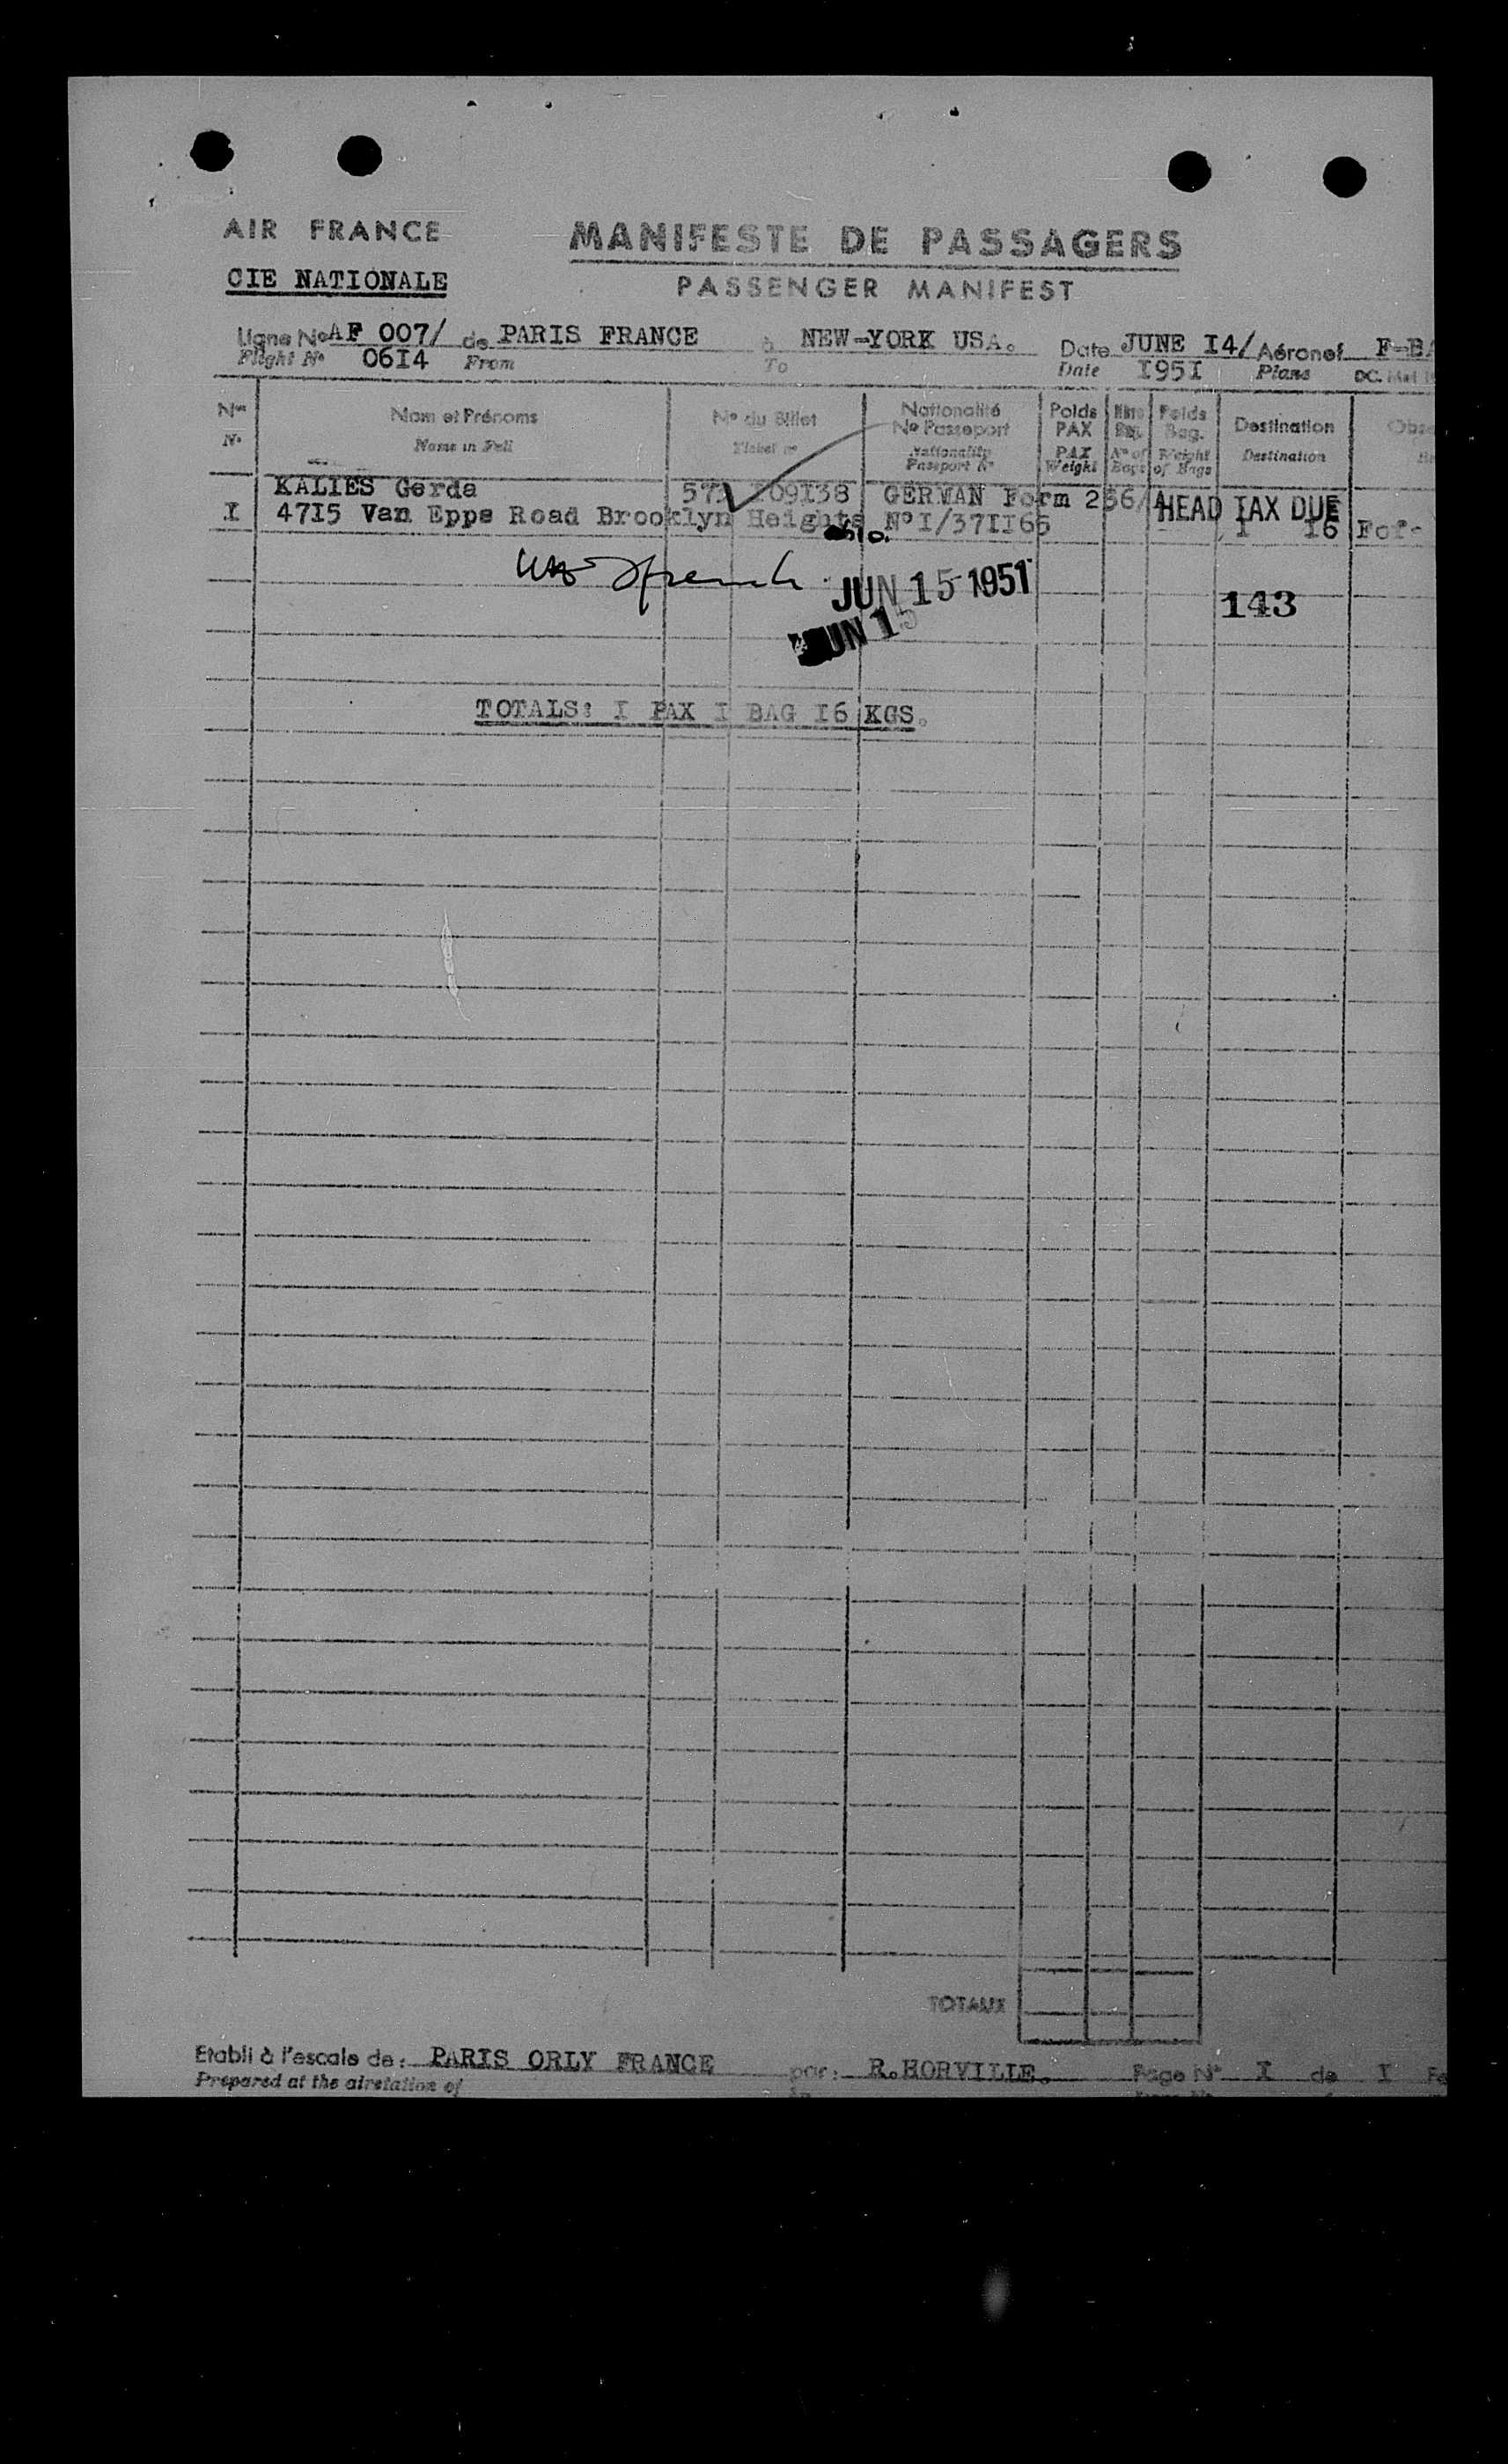 AIR FRANCE
MANIFESTE DE PASSAGERS
CIE NATIONALE
PASSENGER MANIFEST
Ligne No AF 007/ de PARIS FRANCE à NEW-YORK USA. Date JUNE I4/ Aéronef F-BA
Flight No 06I4 From To Date I95I Plane DC.
Nos Nom et Prénoms No du Billet Nationalité No Passeport Poids PAX Poids Bag. Destination
No Name in Full Ticket no Nationality Passport No PAX Weight No of Bags Weight of Bags Destination
KALIES Gerda I09I38 GERMAN Form 256/ HEAD TAX DUE
I 47I5 Van Epps Road Brooklyn Heights No I/37II65 I I6
JUN 15 1951
143
JUN 15
TOTALS: I PAX I BAG I6 KGS.
TOTAUX
Etabli à l'escale de: PARIS ORLY FRANCE par: R.HORVILLE. Page No I de I
Prepared at the airstation of